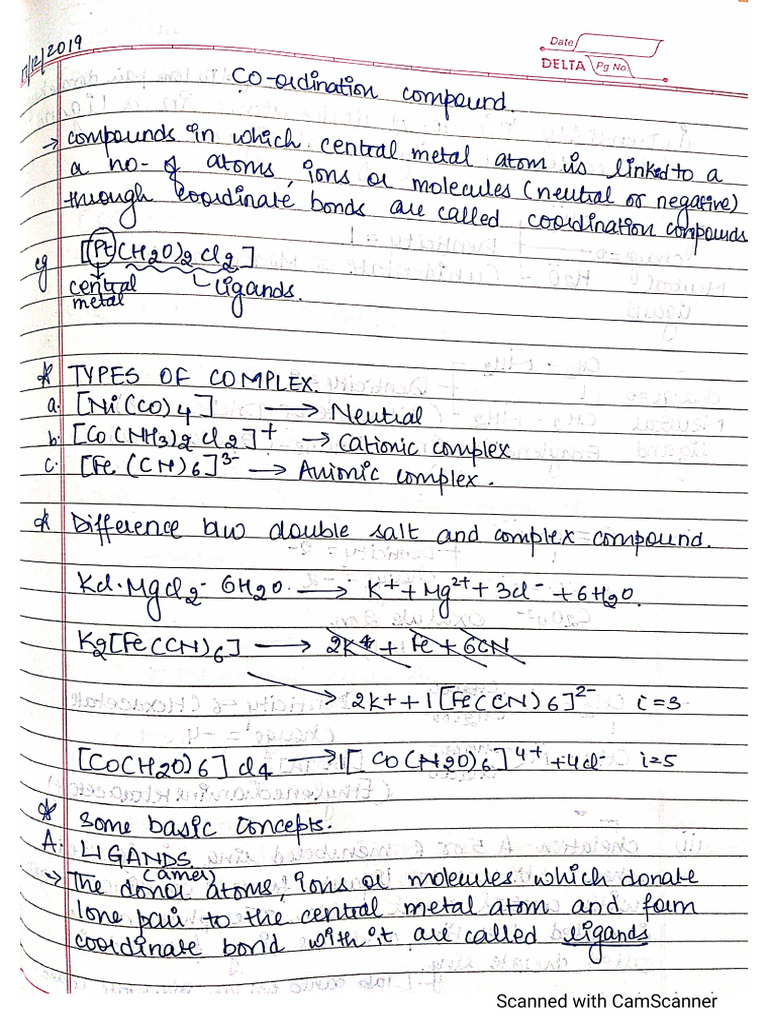 17/12/2019
Date
DELTA Pg No.
CO-ordination compound.
→ compounds in which central metal atom is linked to a
a no- of atoms, ions or molecules (neutral or negative)
through coordinate bonds are called coordination compounds
eg [Pt(H2O)2Cl2]
central metal
Ligands.
* TYPES OF COMPLEX.
a. [Ni(CO)4] → Neutral
b. [Co(NH3)2Cl2]+ → Cationic complex
c. [Fe(CN)6]3- → Anionic complex.
* Difference b/w double salt and complex compound.
KCl·MgCl2·6H2O. → K+ + Mg2+ + 3Cl- + 6H2O.
K2[Fe(CN)6] → 2K+ + Fe + 6CN
→ 2K+ + 1[Fe(CN)6]2- i=3
[Co(H2O)6]Cl4 → 1[CO(H2O)6]4+ + 4Cl- i=5
* Some basic concepts.
A. LIGANDS
(amer)
→ The donor atoms, ions or molecules which donate
lone pair to the central metal atom and form
coordinate bond with it are called ligands
Scanned with CamScanner